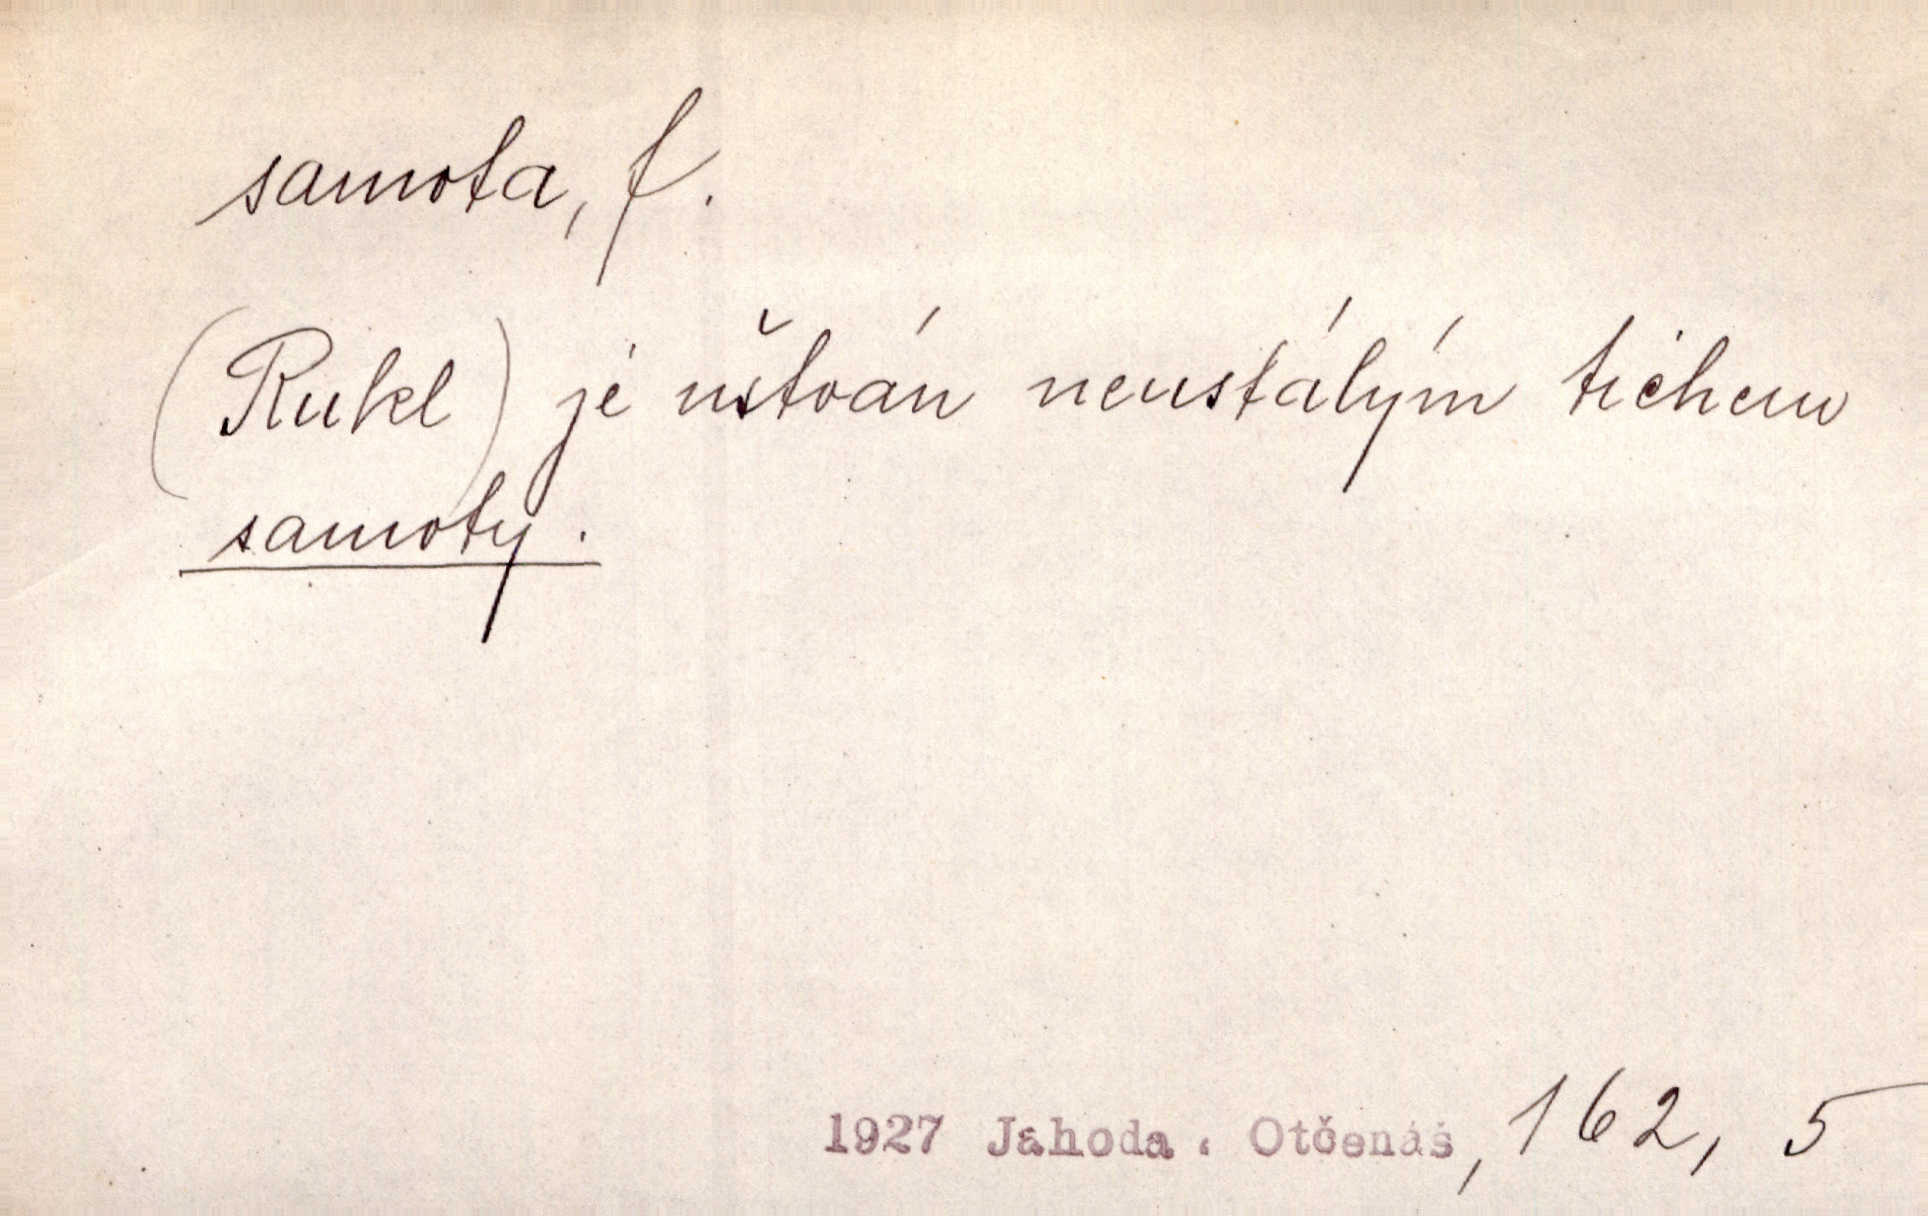 samota, f.
(Rukl) je uštván neustálým tichem
samoty.
1927 Jahoda. Otčenáš, 162, 5